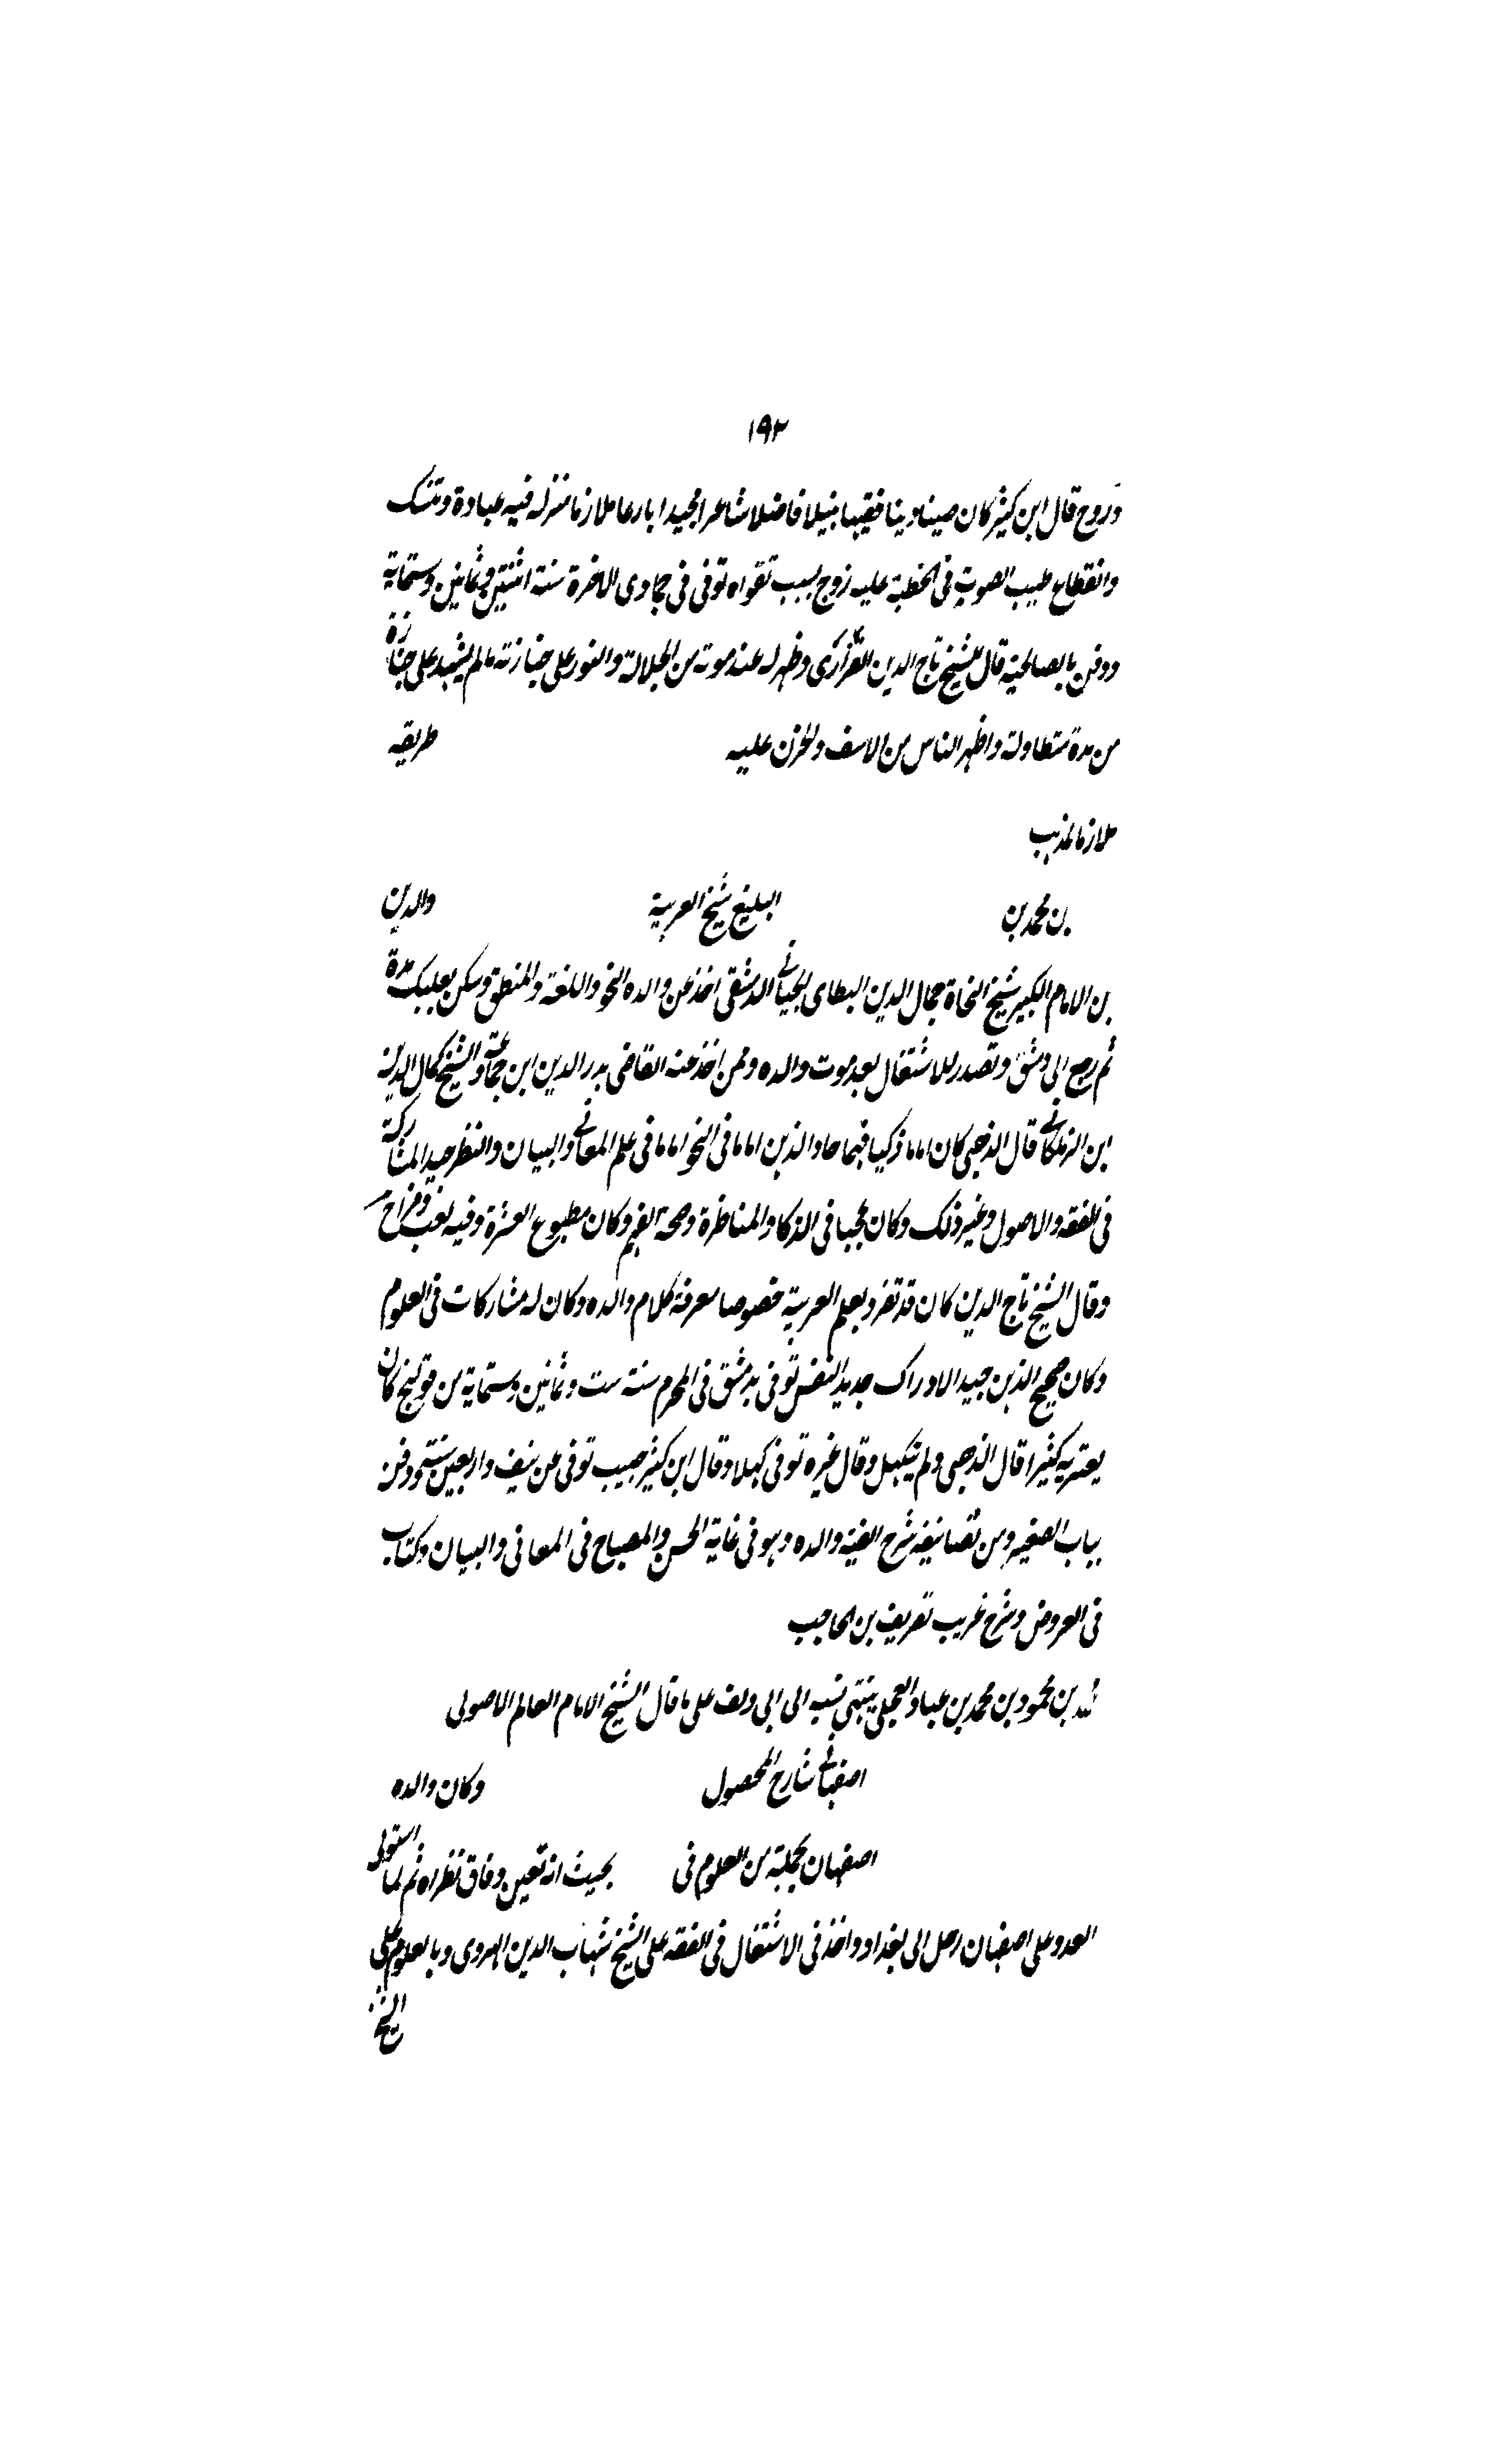 ١٩٢
وروح قال ابن كثير كان صينا دينا فقيها نبيلا فاضلا شاعرا مجيدا بارعا ملازما منزله فيه عبادة وتنسك
وانقطاع طيب الصوت في الخطبة عليه روح بسبب تقواه توفى في جمادى الاخرة سنة اثنتين وثمانين وستماية
ودفن بالصالحية قال الشيخ تاج الدين الفزاري وظهر له عند موته من الجلالة والنور على جنازته ما لم يشهد على جنازة
من مدة متطاولة واظهر الناس من الاسف والحزن عليه طريقه
ملازما لمذهب
بن محمد بن البليغ شيخ العربية والدين
بن الامام الكبير شيخ النحاة جمال الدين الطاى الجياني الدمشقى اخذ عن والده النحو واللغة والمنطق وسكن بعلبك مدة
ثم رجع الى دمشق وتصدر للاشتغال بعد موت والده وممن اخذ عنه القاضى بدر الدين ابن جماعة والشيخ كمال الدين
ابن الزملكاني قال الذهبى كان اماما ذكيا فهما حاد الذهن اماما فى النحو اماما فى علم المعاني والبيان والنظر جيد المشاركة
فى الفقه والاصول وغير ذلك وكان عجبا فى الذكا والمناظرة وصحة الفهم وكان مطبوع العشرة وفيه لعب ومزاح
وقال الشيخ تاج الدين كان قد تفرد بعلم العربية خصوصا معرفة كلام والده وكان له مشاركات فى العلوم
وكان صحيح الذهن جيد الادراك حديد النفس توفى بدمشق فى المحرم سنة ست وثمانين وستماية من قولنج كان
يعتريه كثيرا قال الذهبى ولم يتكهل وقال غيره توفى كهلا وقال ابن كثير حبيب توفى عن نيف واربعين سنة ودفن
بباب الصغير ومن تصانيفه شرح الفية والده وهو فى غاية الحسن والمصباح فى المعانى والبيان وكتاب
فى العروض وشرح غريب تعريف بن الحاجب
بن محمود بن محمد بن عباد العجلى ينتهى نسبه الى ابى دلف على ما قال الشيخ الامام العالم الاصولى
اصفهاني شارح المحصول وكان والده
اصفهان بجملة من العلوم فى بحيث انه تعين وفاق نظراه ثم لما استولى
العدو على اصفهان رحل الى بغداد واخذ فى الاشتغال فى الفقه على الشيخ شهاب الدين الهروى وبالعلوم على
الشيخ